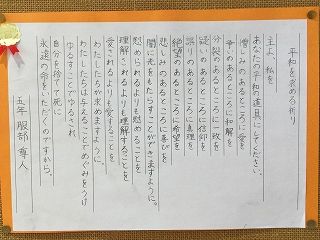 平和を求める祈り
主よ、私を
あなたの平和の道具にしてください。
憎しみのあるところに愛を
争いのあるところに和解を
分裂のあるところに一致を
疑いのあるところに信仰を
誤りのあるところに真理を
絶望のあるところに希望を
悲しみのあるところに喜びを
闇に光をもたらすことができますように。
慰められるよりも慰めることを
理解されるよりも理解することを
愛されるよりも愛することを
わたしたちが求めますように。
わたしたちは与えることでめぐみをうけ
ゆるすことでゆるされ
自分を捨てて死に
永遠の命をいただくのですから。
五年 服部 尊人